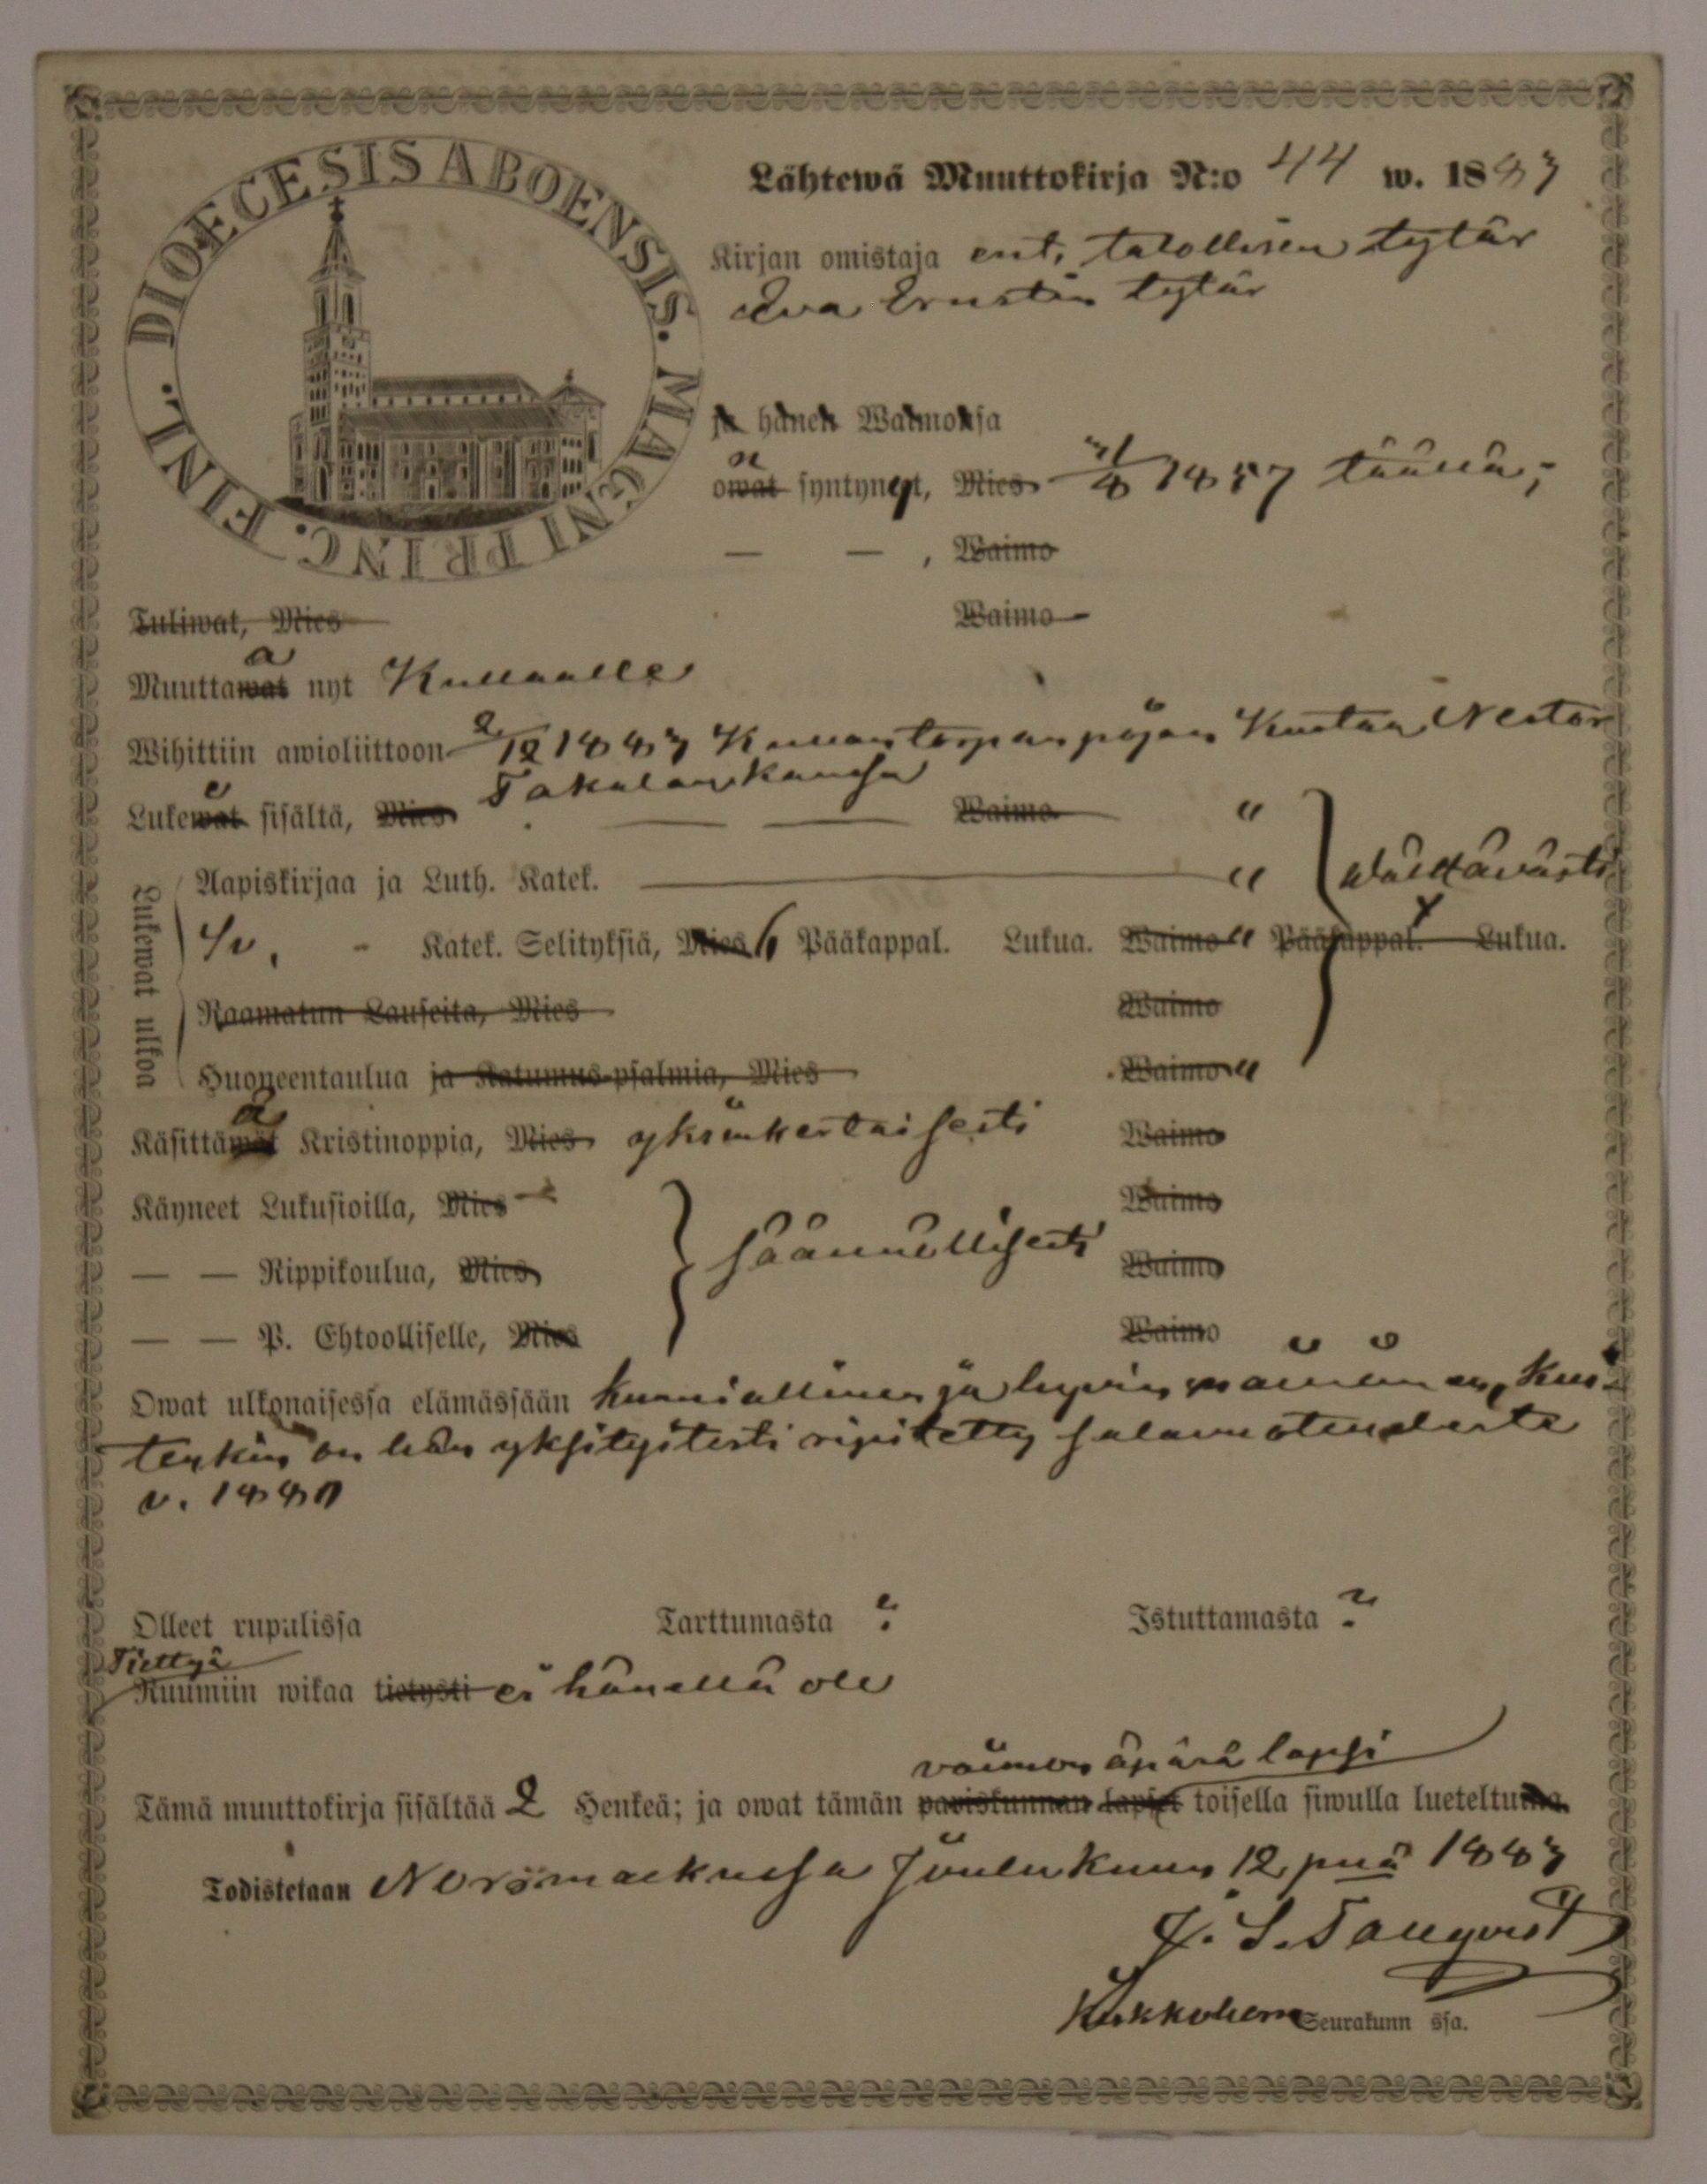 DIOECESIS ABOENSIS. MAGNI PRINC. FINL.
Lähtewä Muuttokirja N:o 44 w. 1883
Kirjan omistaja ent. talollisen tytär
Eva Ernstin tytär
ja hänen Waimonsa
n
owat syntynyt, Mies 1857 täällä;
— — , Waimo
Tuliwat, Mies Waimo
a
Muuttawat nyt Kullaalle
Wihittiin awioliittoon 2/12 1883 torpan pojan Kustaa Nestor
Takalan kanssa
e
Lukewat sisältä, Mies — — Waimo "
Lukewat ulkoa
Aapiskirjaa ja Luth. Katek. — " välttävästi
Katek. Selityksiä, Mies 6 Pääkappal. Lukua. Waimo " Pääkappal. Lukua.
Raamatun Lauseita, Mies Waimo
Huoneentaulua ja Katumus-psalmia, Mies Waimo "
ä
Käsittäwät Kristinoppia, Mies yksinkertaisesti Waimo
Käyneet Lukusioilla, Mies Waimo
— — Rippikoulua, Mies säännöllisesti Waimo
— — P. Ehtoolliselle, Mies Waimo
Owat ulkonaisessa elämässään kunniallinen ja hyvin mainen, kui-
tenkin on hän yksityisesti ripitetty salavuoteudesta
v. 1880
Olleet rupulissa Tarttumasta ? Istuttamasta ?
Tiettyä
Ruumiin wikaa tietysti ei hänellä ole
vaimon äpärä lapsi
Tämä muuttokirja sisältää 2 Henkeä; ja owat tämän pariskunnan lapset toisella siwulla lueteltuina.
Todistetaan Norrmarkussa Joulukuun 12 pnä 1883
J. S. Tallqvist
Kirkkoherra Seurakunn ssa.